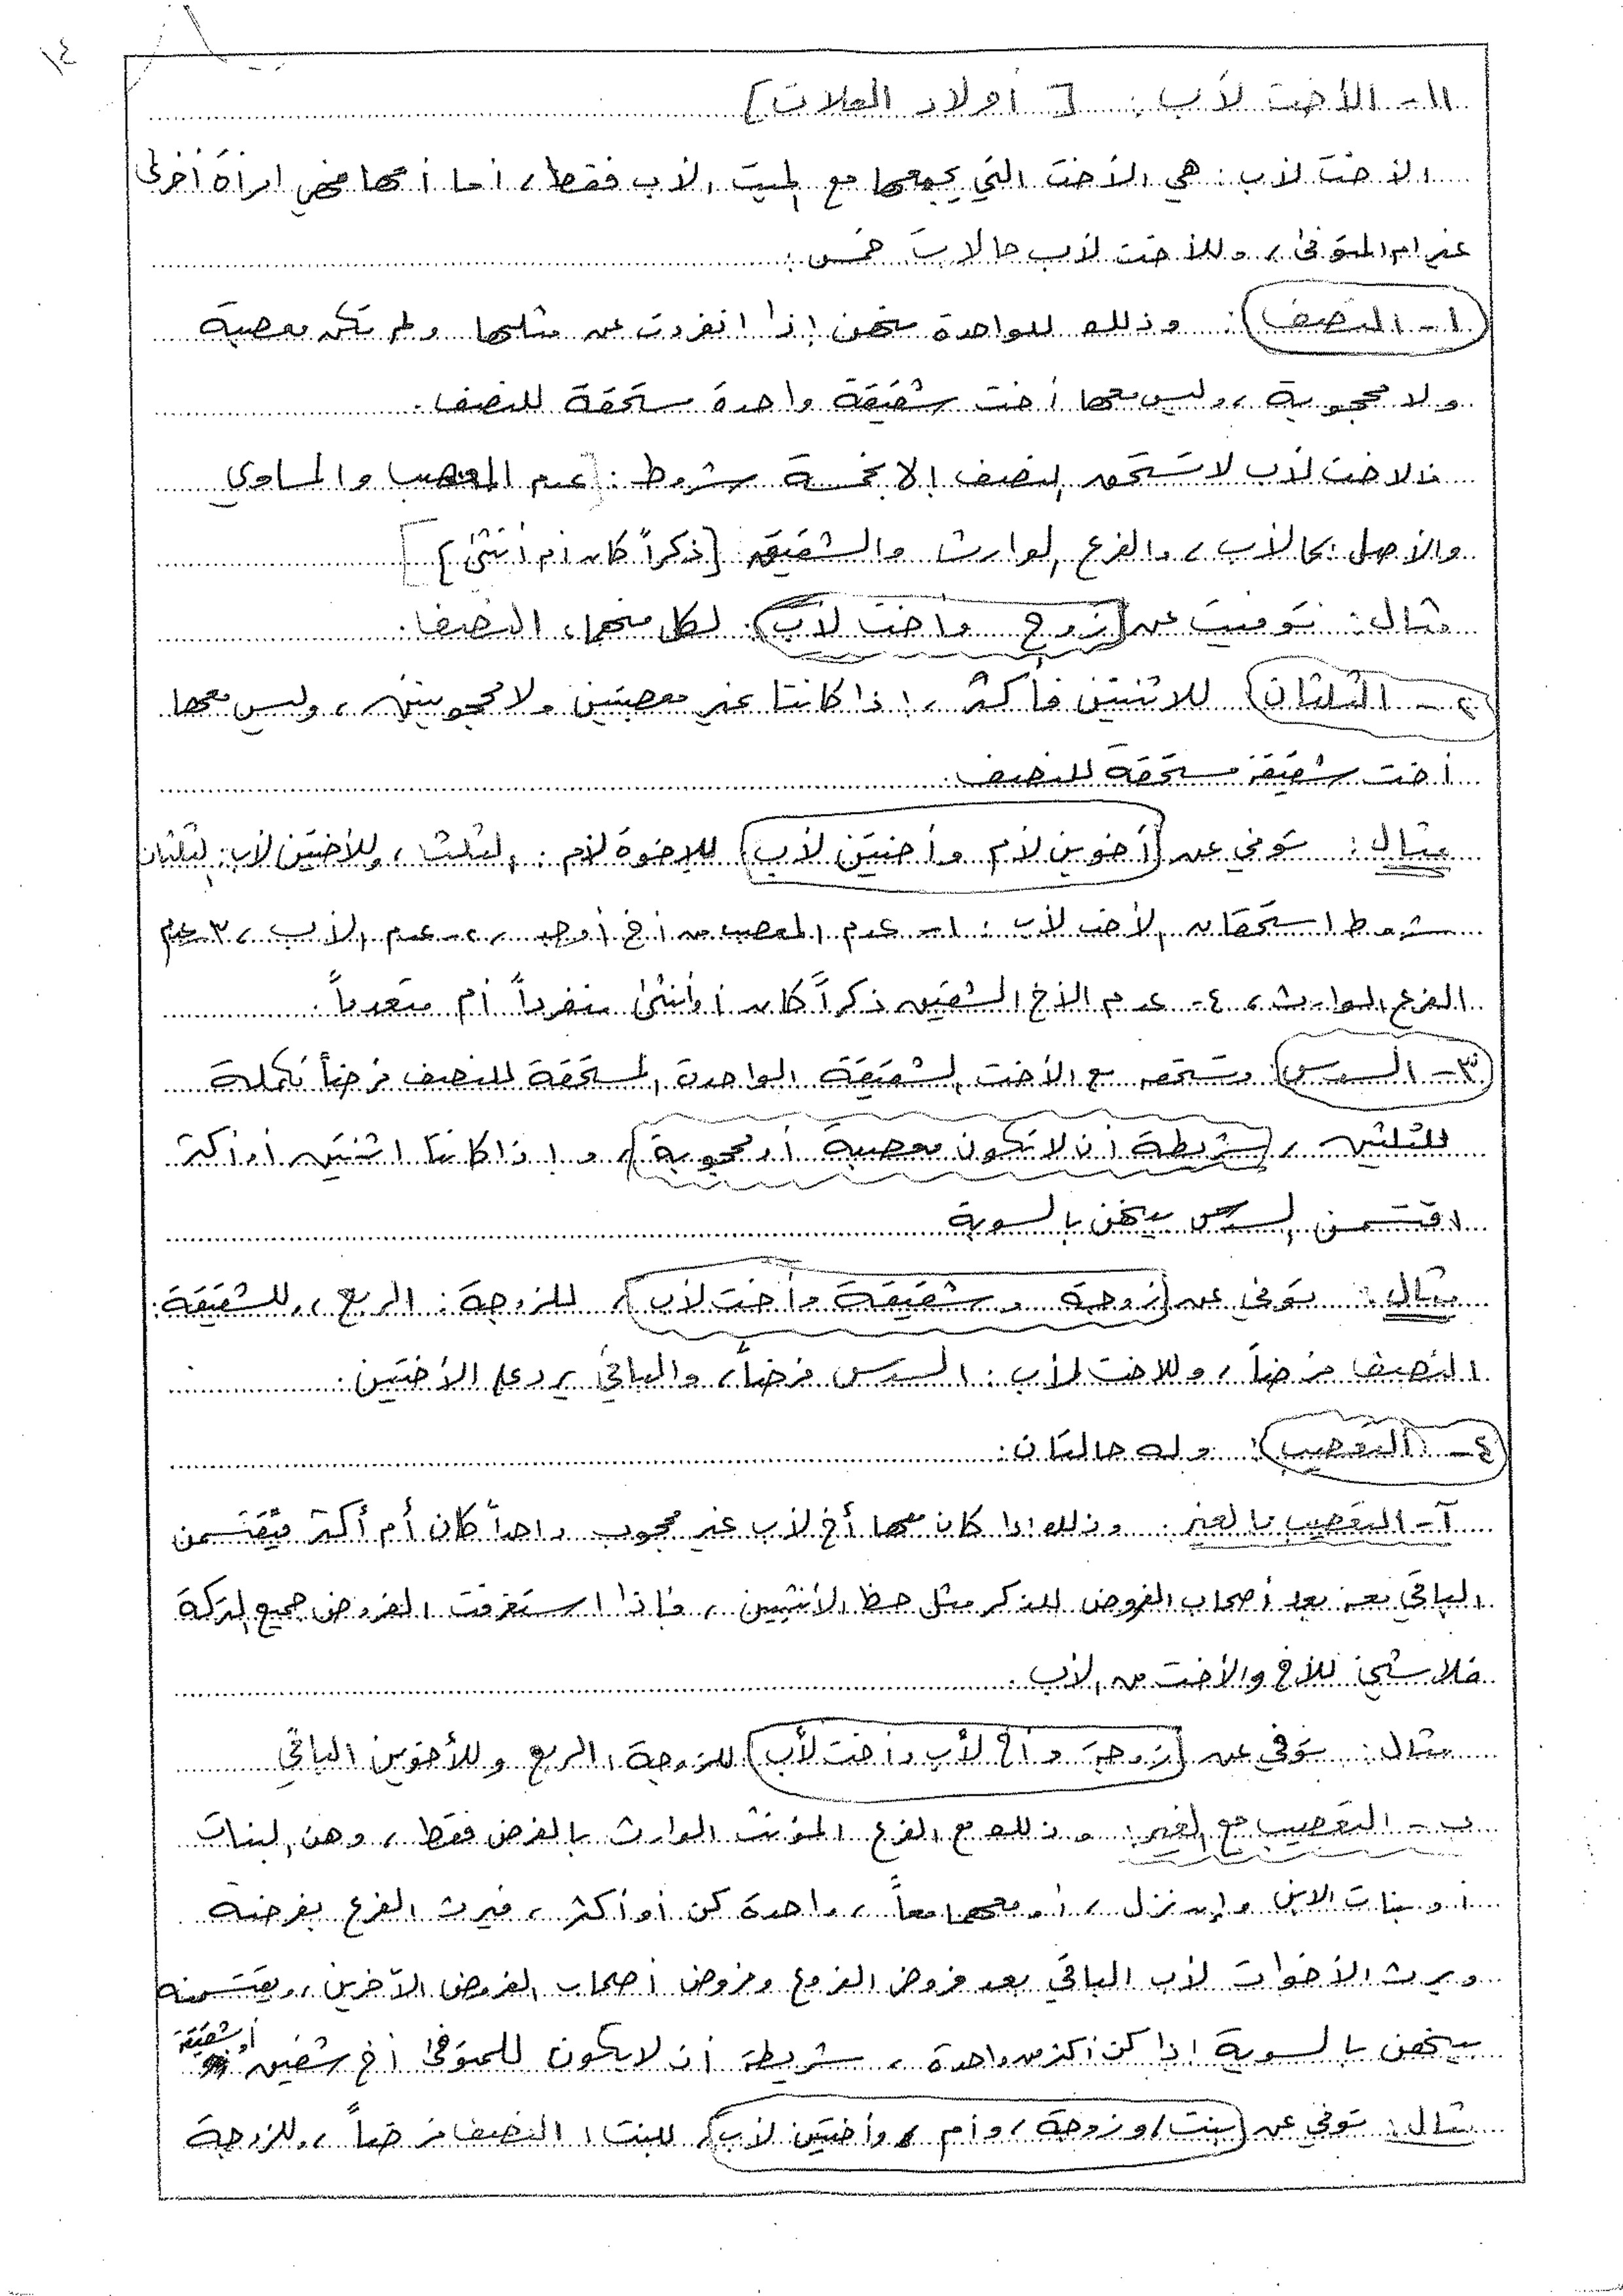 ١٤
١١- الأخت لأب : [ أولاد العلات ]
الأخت لأب : هي الأخت التي يجمعها مع الميت الأب فقط، أما أمها فهي امرأة أخرى
غير أم المتوفى، وللأخت لأب حالات خمس :
١- النصف : وذلك للواحدة منهن إذا انفردت عن مثلها ولم تكن معصبة
ولا محجوبة، وليس معها أخت شقيقة واحدة مستحقة للنصف.
فالأخت لأب لا تستحق النصف إلا بخمسة شروط : [عدم المعصب والمساوي
والأصل كالأب، والفرع الوارث والشقيق [ذكراً كان أم أنثى]]
مثال : توفيت عن (زوج وأخت لأب) لكل منهما النصف.
٢- الثلثان للاثنتين فأكثر، إذا كانتا غير معصبتين ولا محجوبتين، وليس معها
أخت شقيقة مستحقة للنصف.
مثال : توفي عن (أخوين لأم وأختين لأب) للإخوة لأم : الثلث، وللأختين لأب: الثلثان
شروط استحقاق الأخت لأب : ١- عدم المعصب من أخ أو جد، ٢- عدم الأب، ٣- عدم
الفرع الوارث، ٤- عدم الأخ الشقيق ذكراً كان أو أنثى منفرداً أم متعدداً.
٣- السدس : وتستحقه مع الأخت الشقيقة الواحدة المستحقة للنصف فرضاً تكملة
للثلثين، (شريطة أن لا تكون معصبة أو محجوبة)، وإذا كانتا اثنتين أو أكثر
اقتسمن السدس بينهن بالسوية
مثال : توفي عن (زوجة وشقيقة وأخت لأب)، للزوجة : الربع، وللشقيقة :
النصف فرضاً، وللأخت لأب : السدس فرضاً، والباقي يرد على الأختين.
٤- التعصيب : وله حالتان :
آ- التعصيب بالغير : وذلك إذا كان معها أخ لأب غير محجوب واحداً كان أم أكثر فيقتسمن
الباقي بعد أصحاب الفروض للذكر مثل حظ الأنثيين، فإذا استغرقت الفروض جميع التركة
فلا شيئ للأخ والأخت من الأب.
مثال : توفي عن (زوجة وأخ لأب وأخت لأب) للزوجة الربع وللأخوين الباقي
ب- التعصيب مع الغير : وذلك مع الفرع المؤنث الوارث بالفرض فقط، وهن البنات
أو بنات الابن وإن نزل، أو معهما معاً، واحدة كن أو أكثر، فيرث الفرع بفرضه
ويرث الأخوات لأب الباقي بعد فروض الفروع وفروض أصحاب الفروض الآخرين، ويقتسمنه
بينهن بالسوية إذا كن أكثر من واحدة، شريطة أن لا يكون للمتوفى أخ شقيق أو شقيقة
مثال : توفي عن (بنت، وزوجة، وأم، وأختين لأب) للبنت : النصف فرضاً، وللزوجة